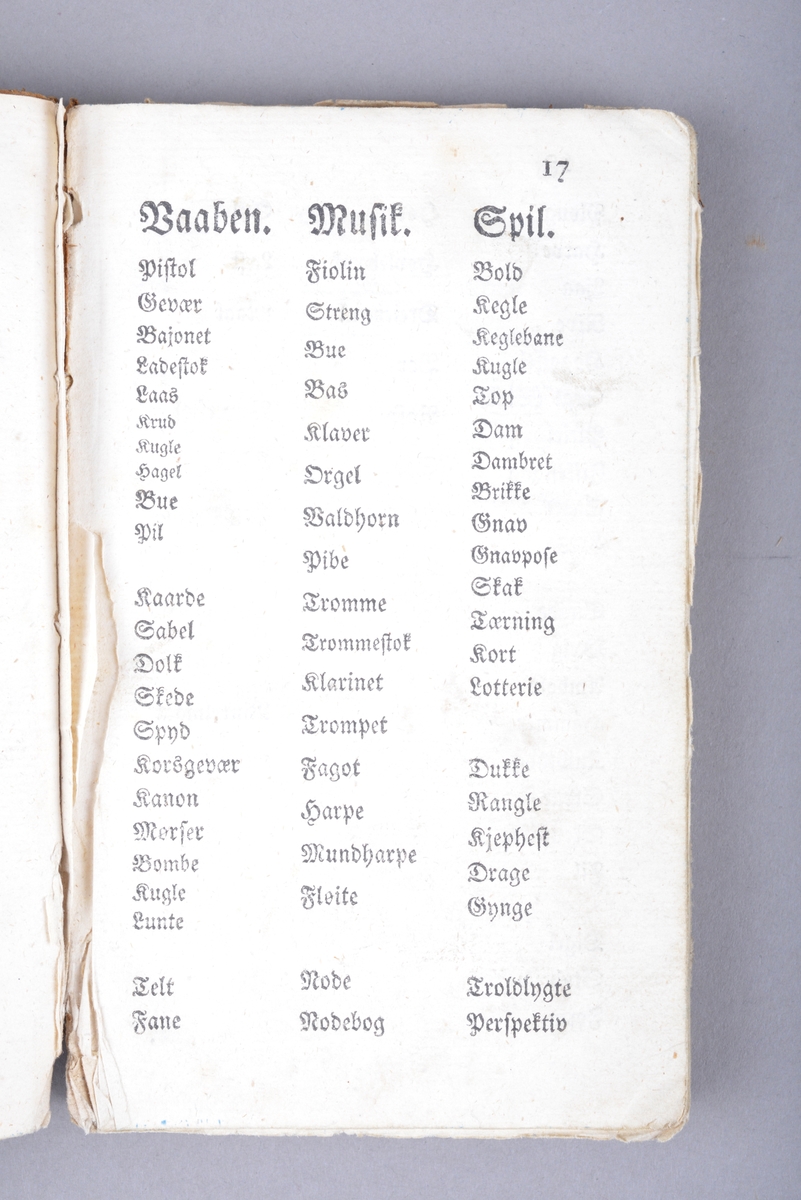 17
Vaaben.
Pistol
Gevær
Bajonet
Ladestok
Laas
Krud
Kugle
Hagel
Bue
Pil
Kaarde
Sabel
Dolk
Skede
Spyd
Korsgevær
Kanon
Mørser
Bombe
Kugle
Lunte
Telt
Fane
Musik.
Fiolin
Streng
Bue
Bas
Klaver
Orgel
Valdhorn
Pibe
Tromme
Trommestok
Klarinet
Trompet
Fagot
Harpe
Mundharpe
Fløite
Node
Nodebog
Spil.
Bold
Kegle
Keglebane
Kugle
Top
Dam
Dambret
Brikke
Gnav
Gnavpose
Skak
Tærning
Kort
Lotterie
Dukke
Rangle
Kjephest
Drage
Gynge
Troldlygte
Perspektiv